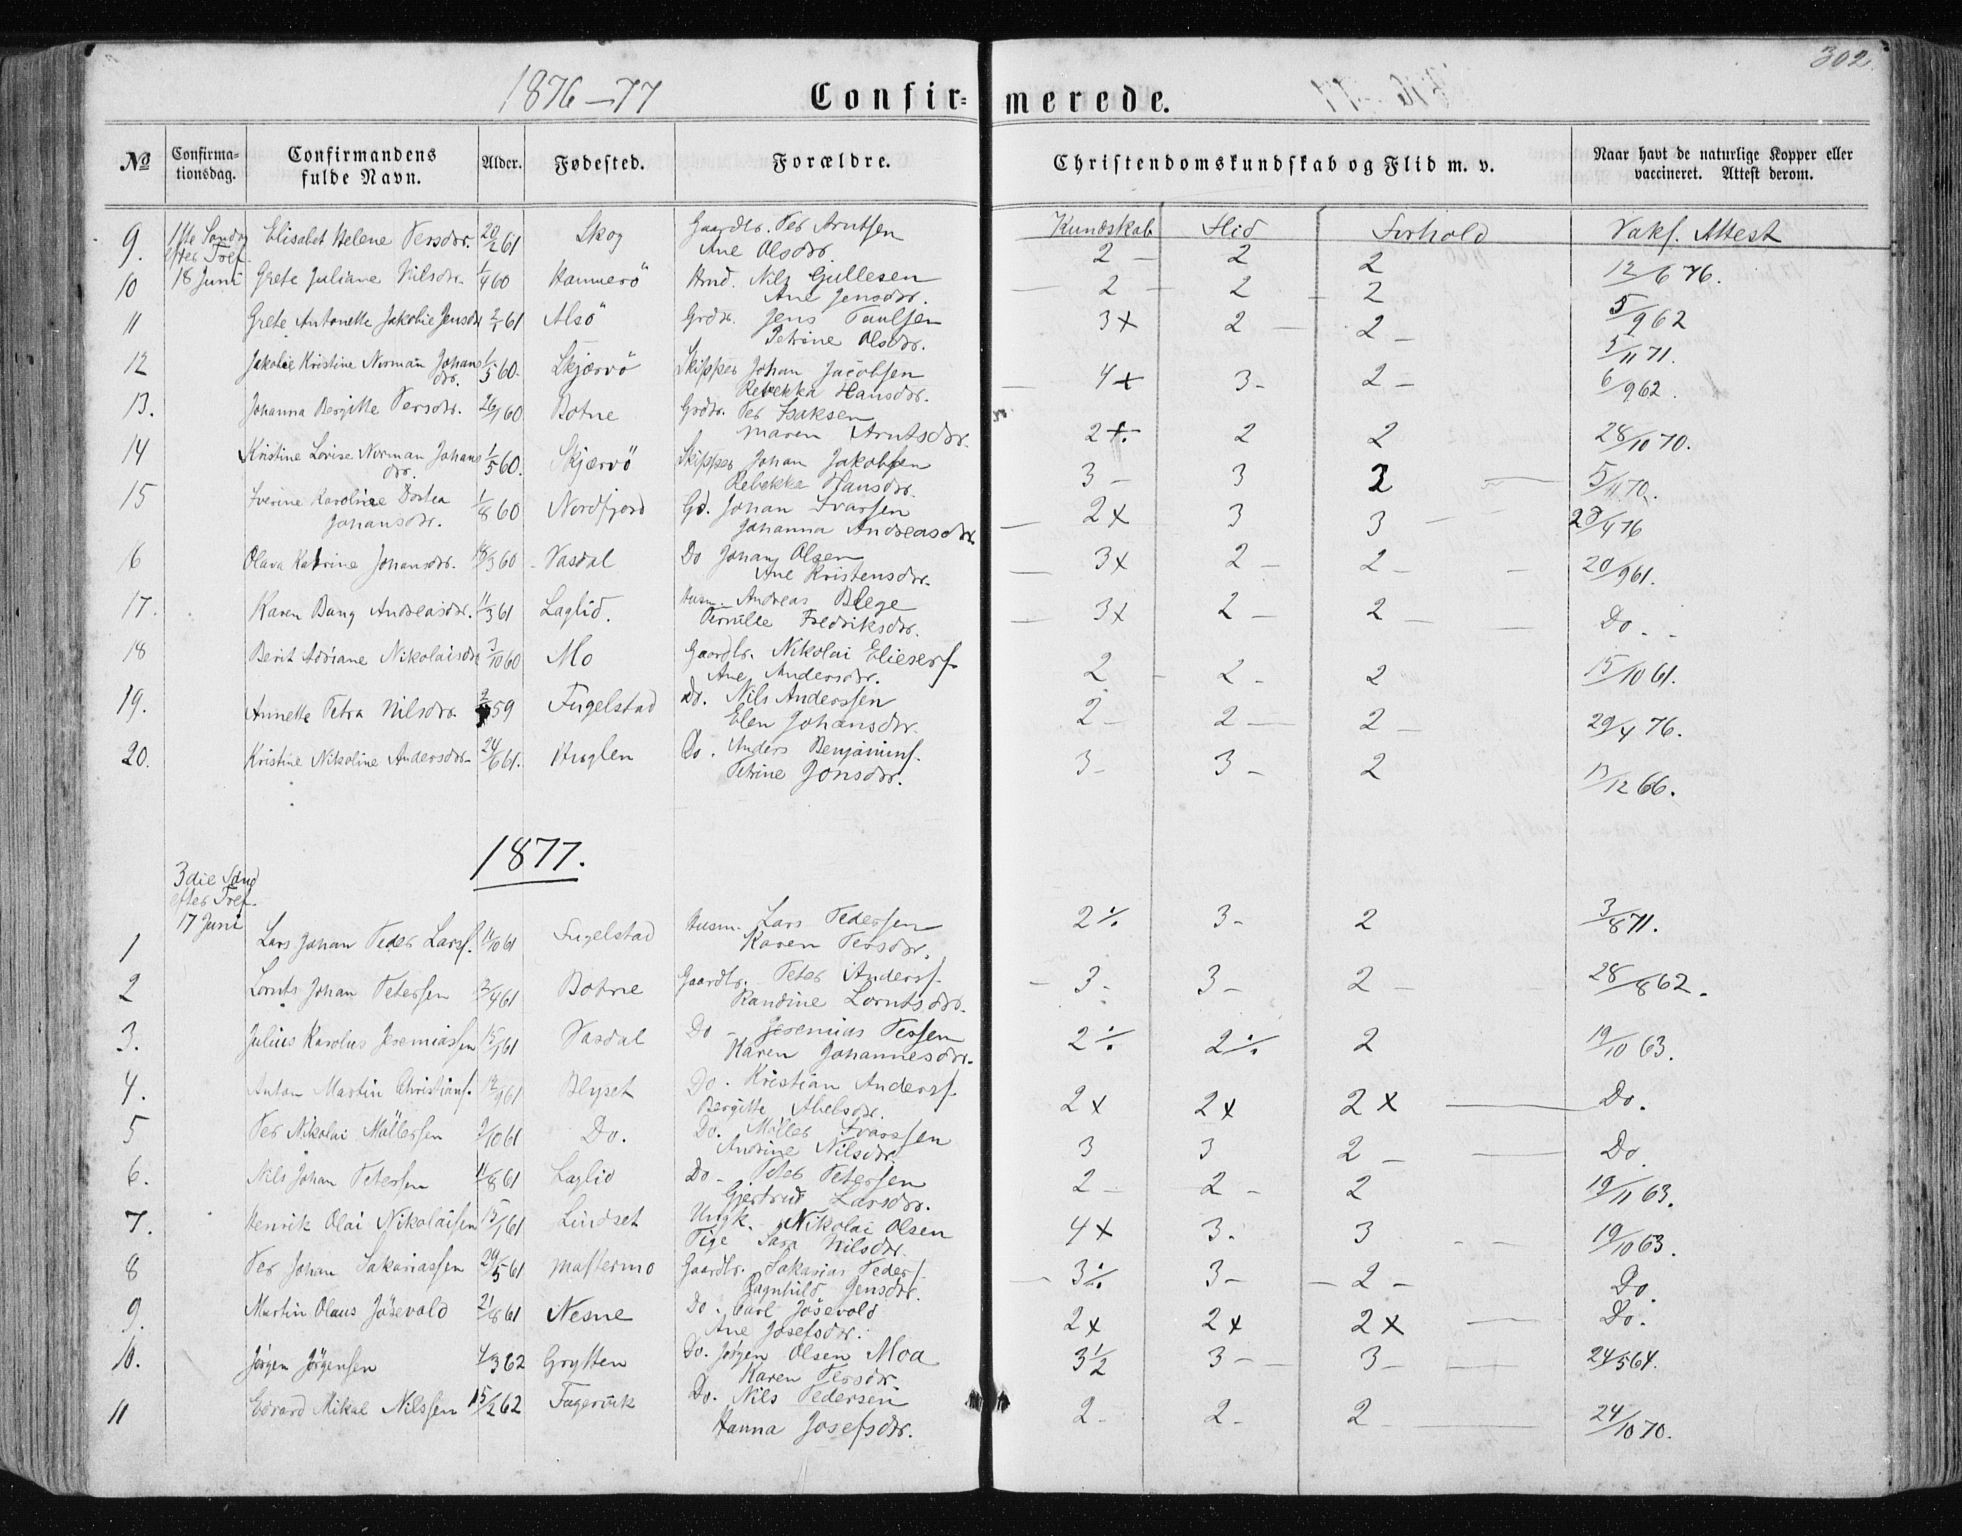 302
1876–77
Confir- merede.
No Confirmationsdag. Confirmandens fulde Navn. Alder. Fødested. Forældre. Christendomskundskab og Flid m. v. Naar havt de naturlige Kopper eller vaccineret. Attest derom.
Kundskab Flid Forhold Vaks. Attest
9. Elisabet Helene Persdtr. 20/2 61 Skog Gaardbr. Per Arntsen 2 – 2 2 12/6 76.
efter Tref. Ane Olsdtr.
10 18 Juni Grete Juliane Nilsdtr. 1/4 60 Hannerö Hmd. Nils Gullesen 2 – 2 – 2 5/9 62
Ane Jensdtr.
11 Grete Antonette Jakobie Jensdtr 2/1 61 Alsö Grdbr. Jens Paulsen 3x 2 – 2 – 5/11 71.
Petrine Olsdtr.
12 Jakobie Kristine Norman Johans 1/5 60. Skjærvö Skipper Johan Jacobsen 4x 3 – 2 – 6/9 62.
dtr. Rebekka Hansdtr.
13. Johanna Bergitte Persdtr. 26/1 60 Botne Grdbr. Per Isaksen 2 2 2 28/10 70.
Maren Arntsdtr.
14 Kristine Lovise Norman Johans 1/5 60. Skjærvö Skipper Johan Jakobsen 3 – 3 2 5/11 70.
dtr. Rebekka Hansdtr.
15 Iverine Karoline Dortea 1/8 60 Nordfjord Gd. Johan Ivarsen 2x 3 3 – 29/4 76
Johansdtr. Johanna Andreasdtr.
16 Olava Katrine Johansdtr. 18/3 60 Vasdal Do Johan Olsen 3x 2 – 2 – 20/9 61.
Ane Kristensdtr.
17. Karen Bang Andreasdtr. 11/3 61 Laglid. Husm. Andreas Blege 3x 2 – 2 – Do.
Pernille Fredriksdtr.
18 Berit Adriane Nikolaisdtr 7/10 60 Mo Gaardbr. Nikolai Eliesers. 2 – 2 – 2 15/10 61.
Ane Andersdtr.
19. Annette Petra Nilsdtr. 59 Fugelstad Do. Nils Anderssen 2 – 2 – 2 – 29/4 76.
Elen Johansdtr.
20. Kristine Nikoline Andersdtr. 24/6 61. Huglen Do. Anders Benjamins. 3 – 3 – 2 13/12 66.
Petrine Jonsdtr.
1877.
3die Sønd
efter Tref.
17 Juni
1 Lars Johan Peder Lars. 14/10 61 Fugelstad Husm. Lars Pedersen 2 ⁒ 3 – 2 3/8 71.
Karen Persdtr.
2 Lornts Johan Petersen 2/4 61 Botne Gaardbr. Peter Anders. 3 – 3 – 2 – 28/8 62.
Randine Lorntsdtr.
3. Julius Karolus Jeremiassen 15/1 61 Vasdal Do – Jeremias Persen 2 ⁒ 2 ⁒ 2 19/10 63.
Karen Johannesdtr.
4. Anton Martin Christians. 12/9 61 Blyset Do. Kristian Anders. 2x 2x 2x Do.
Bergitte Abelsdtr.
5 Per Nikolai Möllersen 9/10 61 Do. Do. Möller Ivarssen 3 3 2 – Do
Andrine Nilsdtr.
6. Nils Johan Petersen 14/8 61 Laglid Do – Peter Petersen 2 – 2 – 2 19/11 63.
Gjertrud Larsdtr.
7. Henrik Olai Nikolaisen 15/1 61 Lindset Ungk. Nikolai Olsen 4x 3. 3 19/10 63.
Pige Sara Nilsdtr.
8 Per Johan Sakariassen 29/5 61 Mastermo Gaardbr. Sakarias Peders. 3 ⁒ 3 – 2 – Do.
Ragnhild Jensdtr.
9. Martin Olaus Jösevold 21/8 61 Nesne Do. Carl Jösevold 2x 2x 2x Do.
Ane Josefsdtr.
10. Jörgen Jörgensen 4/3 62 Grytten Do. Jörgen Olsen Moa 3½ 3 – 3 – 24/5 64.
Karen Persdtr.
11 Edvard Mikal Nilssen 15/2 62 Fagervik Do. Nils Pedersen 2 – 2 – 2 24/10 70.
Hanna Josefsdtr.